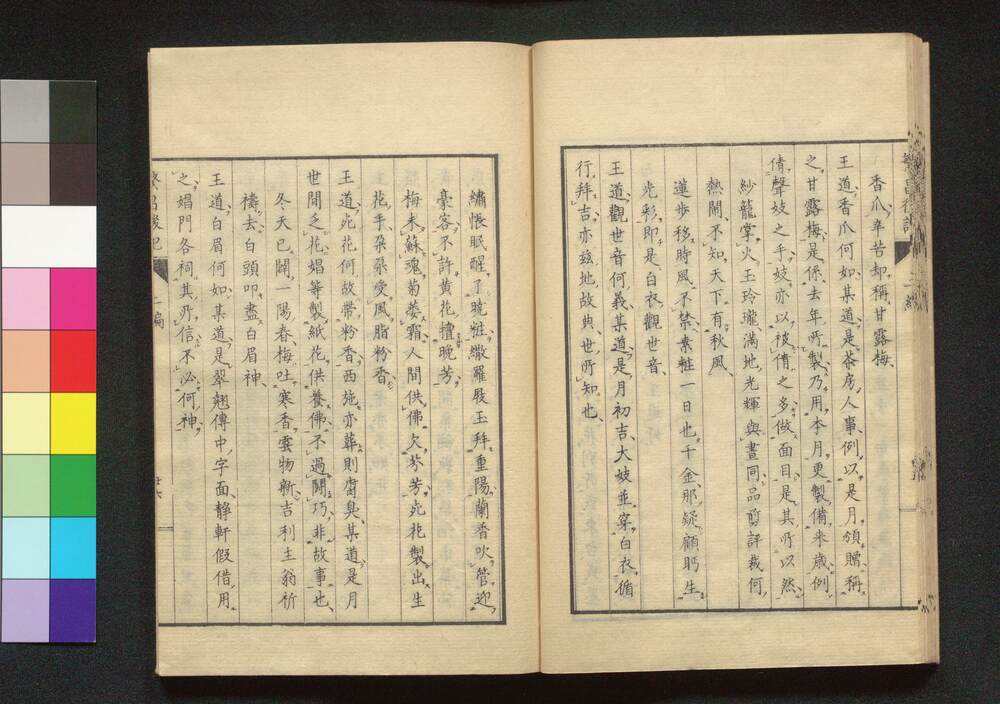 香瓜辛苦却稱甘露梅
王道香瓜何如某道是茶房人事例以是月領贈稱
之甘露梅是係去年所製乃用本月更製備来歳例
倩聲妓之手妓亦以被倩之多做面目是其所以然
紗籠掌火玉玲瓏満地光輝與晝同品前評裁何
熱鬧不知天下有秋風
蓮歩移時風不禁素粧一日也千金那疑顧眄生
光彩即是白衣觀世音
王道觀世音何義某道是月初吉大妓並穿白衣循
行拜吉亦玆地故典世所知也
繡悵眠醒了晩粧繖羅殿玉拜重陽蘭香吹管迎
豪客不許黄花擅晩芳
梅未蘇魂菊萎霜人間供佛欠芬芳死花製出生
花手朶朶受風脂粉香
王道死花何故帶粉香西施亦葬則腐臭某道是月
世間乏花娼等製紙花供養佛不過鬪巧非故事也
冬天已闢一陽春梅吐寒香雲物新吉利主翁祈
禱去白頭叩盡白眉神
王道白眉何如某道是翠翹傳中字面静軒假借用
之娼門各祠其所信不必何神
繁昌後記
二編
廿六